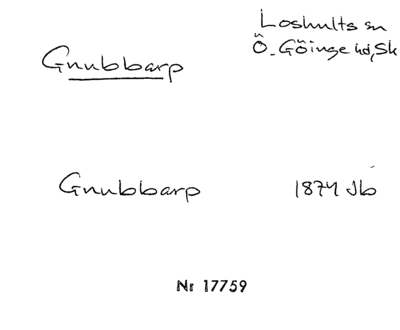 Gnubbarp
Loshults sn
Ö. Göinge hd, Sk
Gnubbarp 1874 Jb
Nr 17759